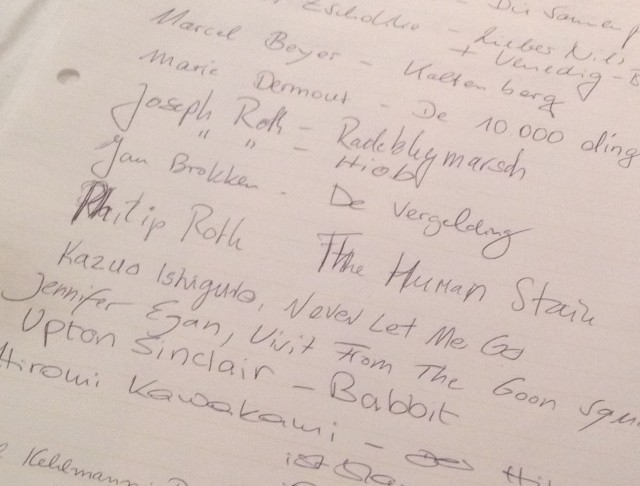 Die Sonnen
Zschokke - Lieber Nils
+ Venedig - B
Marcel Beyer - Kaltenberg
Maria Dermout - De 10.000 ding
Joseph Roth - Radetzkymarsch
" " - Hiob
Jan Brokken - De Vergelding
Philip Roth The Human Stain
Kazuo Ishiguro, Never Let Me Go
Jennifer Egan, Visit From The Goon Squ
Upton Sinclair - Babbit
Hiromi Kawakami - Hi
ist
Kehlmann